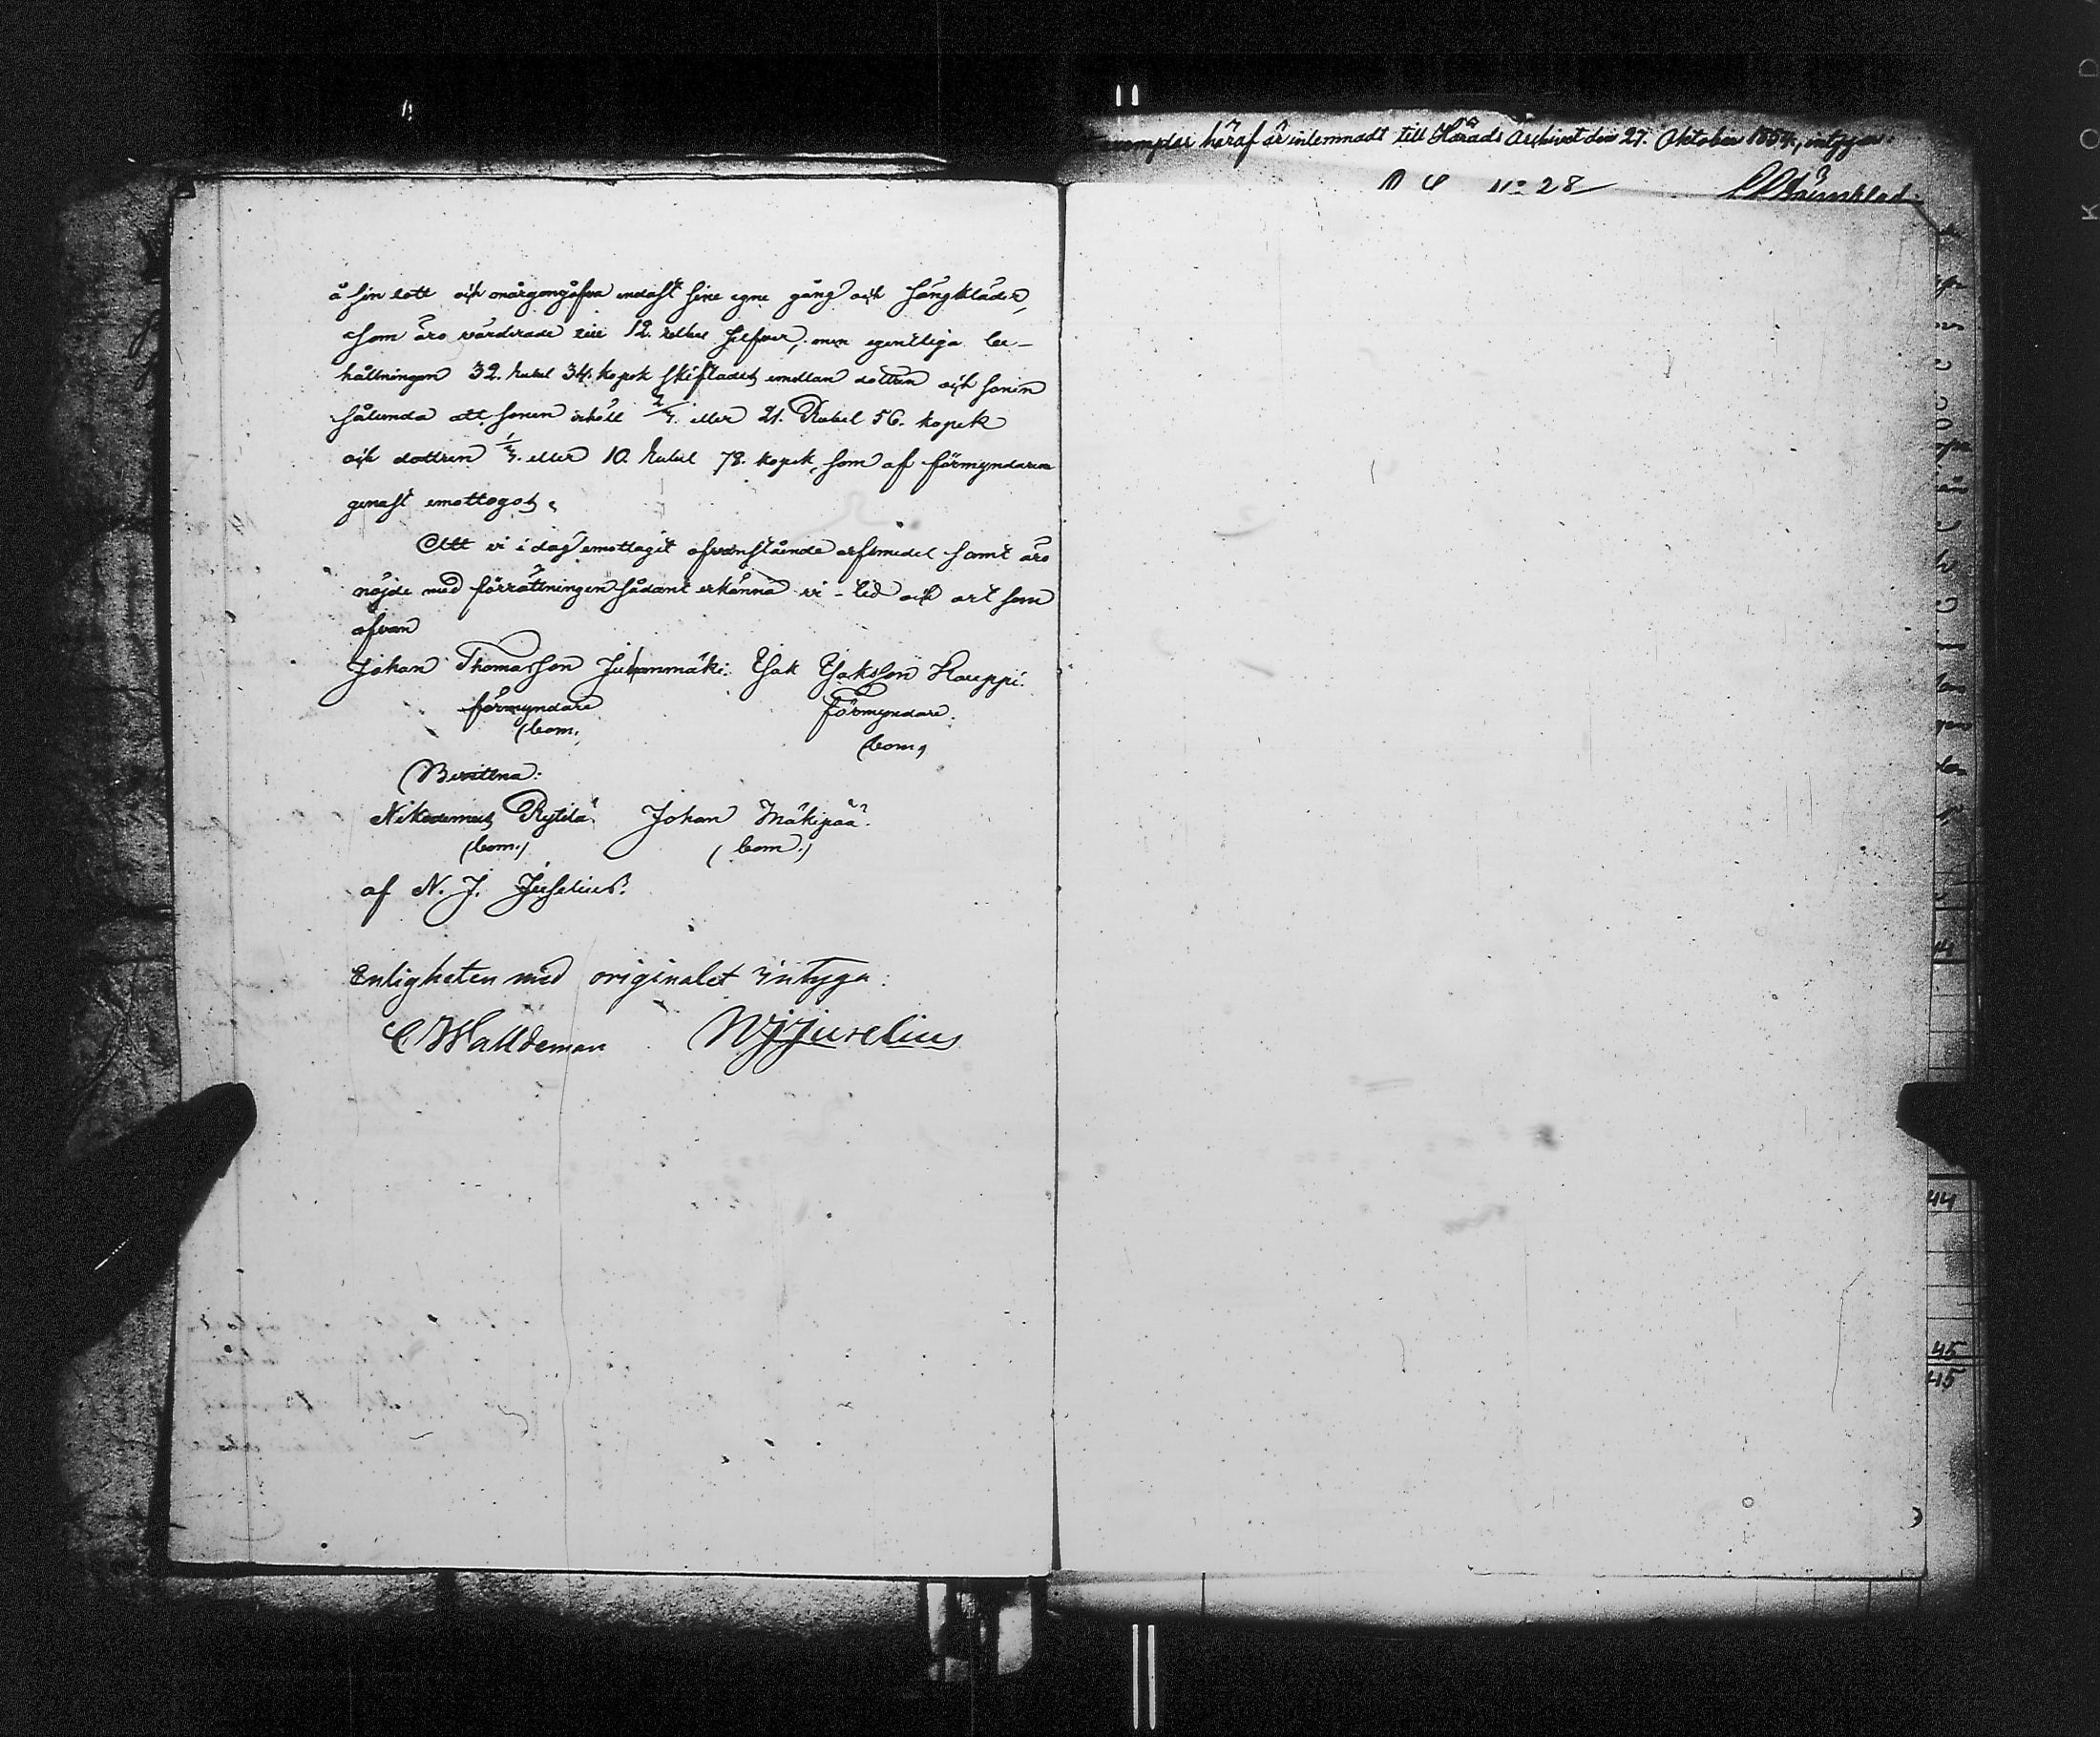 å sin lott och morgongåfva endast sine egne gång och sängkläder,
som äro värderade till 12. rubel silfver, men egentliga be-
hållningen 32. rubel 34. kopek skiftades emellan dottren och sonen
sålunda att sonen erhöll 2/3. eller 21. Rubel 56. kopek
och dottren 1/3. eller 10. rubel 78. kopek, som af förmyndaren
genast emottogos.
Att vi i dag emottagit ofvanstående arfsmedel samt äro
nöjde med förrättningen sådant erkänna vi - tid och ort som
ofvan
Johan Thomasson Juhanmäki. Isak Isaksson Kauppi.
förmyndare Förmyndare.
(bom.) (bom.)
Bevittna:
Nikodemus Rytilä. Johan Mäkipää.
(bom.) (bom.)
af N. J. Juselius.
Enligheten med originalet intyga:
C Walldeman NJJuselius
häraf är inlemnadt till Härads Archivet den 27. Oktober 1854, intygar:
No 28
44
45
45
KOD